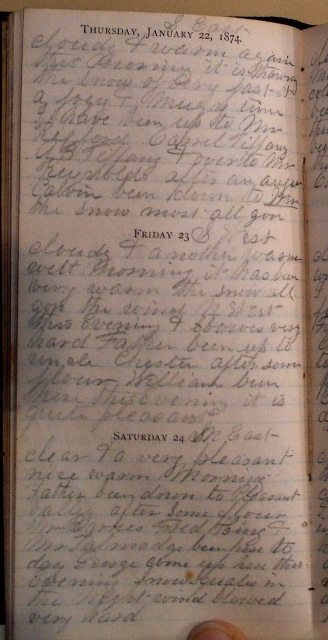 THURSDAY, JANUARY 22, 1874.
S East
cloudy & warm again
this Morning it is thawing
the snow very fast it
a foggy & time
I have been up to Mr
Tiffany
Tiffany & over to Mr
Reynolds after an auger
Calvin been down to
the snow most all gon
FRIDAY 23 S West
cloudy & another warm
wett Morning it has been
very warm the snow all
gon the wind S West
this evening & blows very
hard Father been up to
uncle Chester after some
flour William been
here this evening it is
quite pleasant
SATURDAY 24 N East
clear & a very pleasant
nice warm Morning
Father been down to Pleasant
vally after some flour
Mr Fred &
Mr Talmadge been here to
day George come up here this
evening snow squals in
the Night wind blowed
very hard